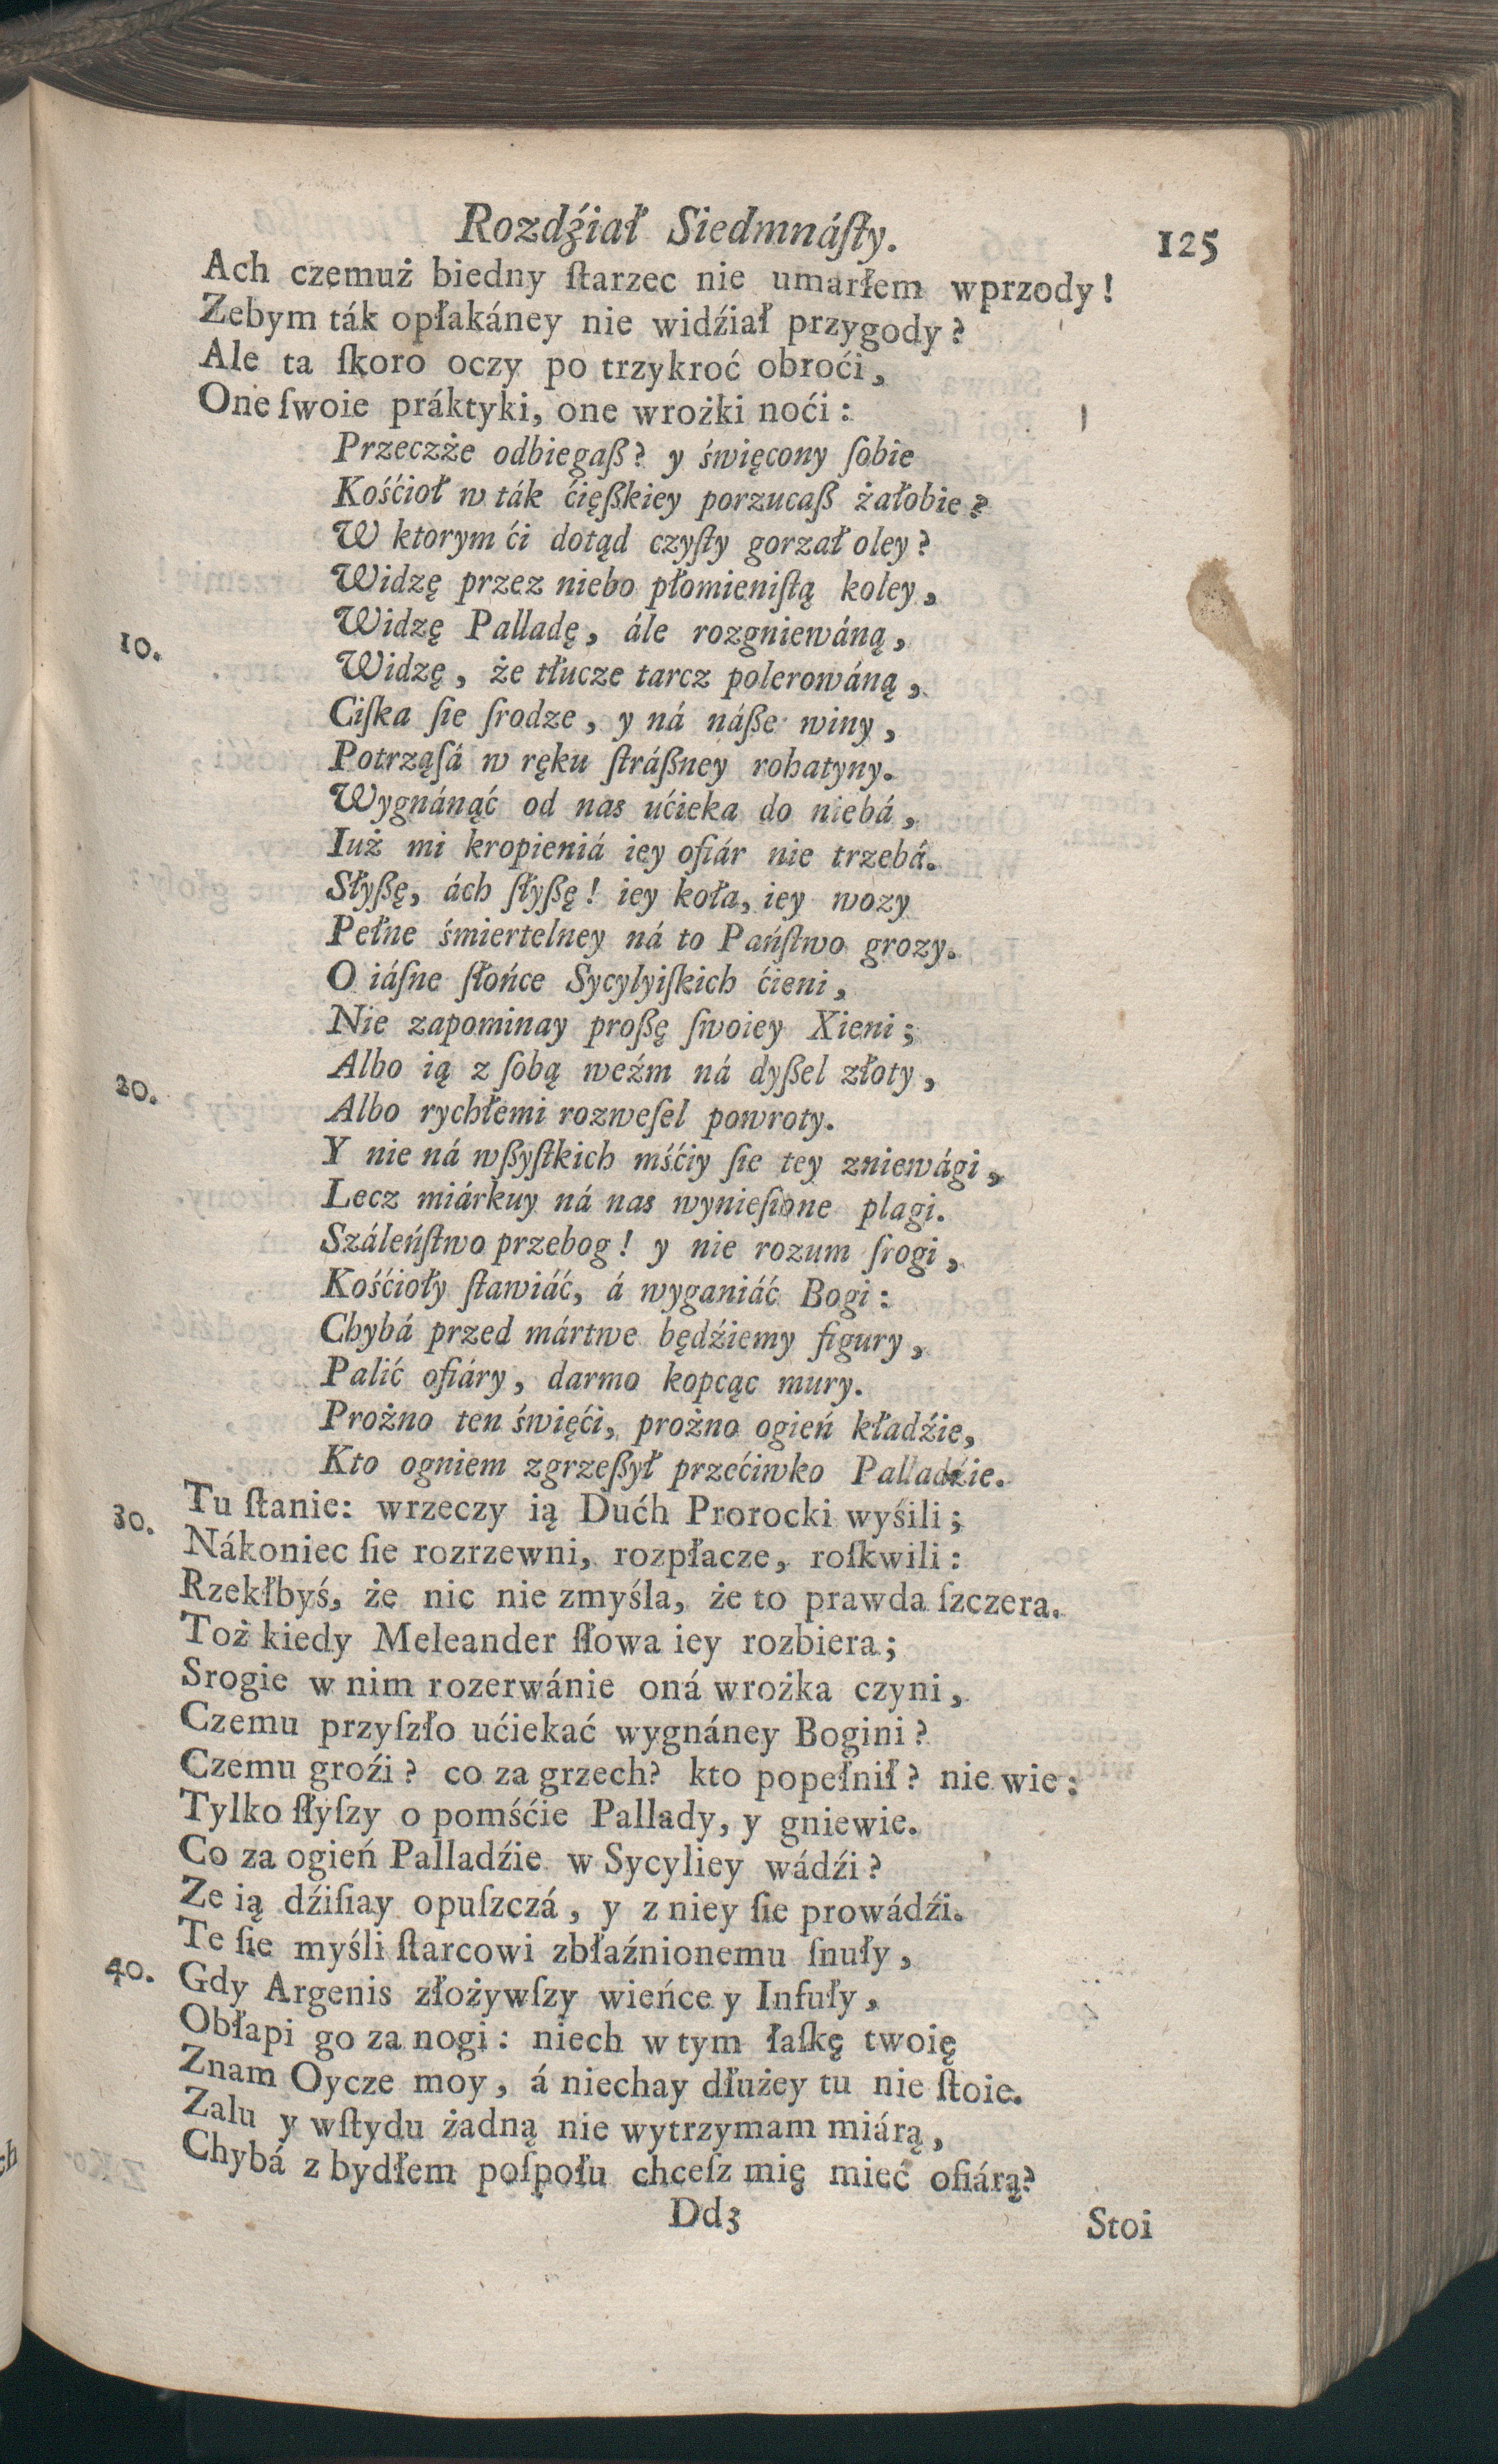 Rozdźiał Siedmnáſty.
125
Ach czemuż biedny ſtarzec nie umarłem wprzody!
Zebym ták opłakáney nie widźiał przygody?
Ale ta ſkoro oczy po trzykroć obroći,
One ſwoie práktyki, one wrożki noći:
Przeczże odbiegaß? y święcony ſobie
Kośćioł w ták ćięßkiey porzucaß żałobie?
W ktorym ći dotąd czyſty gorzał oley?
Widzę przez niebo płomieniſtą koley,
Widzę Palladę, ále rozgniewáną,
10. Widzę, że tłucze tarcz polerowáną,
Ciſka ſie ſrodze, y ná náße winy,
Potrząſá w ręku ſtráßney rohatyny.
Wygnánąć od nas ućieka do niebá,
Iuż mi kropieniá iey ofiár nie trzebá.
Słyßę, ách ſłyßę! iey koła, iey wozy
Pełne śmiertelney ná to Pańſtwo grozy.
O iáſne ſłońce Sycylyiſkich ćieni,
Nie zapominay proßę ſwoiey Xieni;
Albo ią z ſobą weźm ná dyßel złoty,
20. Albo rychłemi rozweſel powroty.
Y nie ná wßyſtkich mśćiy ſie tey zniewági,
Lecz miárkuy ná nas wynieſione plagi.
Száleńſtwo przebog! y nie rozum ſrogi,
Kośćioły ſtawiáć, á wyganiáć Bogi:
Chybá przed mártwe będźiemy figury,
Palić ofiáry, darmo kopcąc mury.
Prożno ten święći, prożno ogień kładźie,
Kto ogniem zgrzeßył przećiwko Palladźie.
Tu ſtanie: wrzeczy ią Dućh Prorocki wyśili;
30. Nákoniec ſie rozrzewni, rozpłacze, roſkwili:
Rzekłbyś, że nic nie zmyśla, że to prawda ſzczera.
Toż kiedy Meleander ſłowa iey rozbiera;
Srogie w nim rozerwánie oná wrożka czyni,
Czemu przyſzło ućiekać wygnáney Bogini?
Czemu groźi? co za grzech? kto popełnił? nie wie:
Tylko ſłyſzy o pomśćie Pallady, y gniewie.
Co za ogień Palladźie w Sycyliey wádźi?
Ze ią dźiſiay opuſzczá, y z niey ſie prowádźi.
Te ſie myśli ſtarcowi zbłaźnionemu ſnuły,
40. Gdy Argenis złożywſzy wieńce y Infuły,
Obłapi go za nogi: niech w tym łaſkę twoię
Znam Oycze moy, á niechay dłużey tu nie ſtoie.
Zalu y wſtydu żadną nie wytrzymam miárą,
Chybá z bydłem poſpołu chceſz mię mieć ofiárą?
Dd3
Stoi